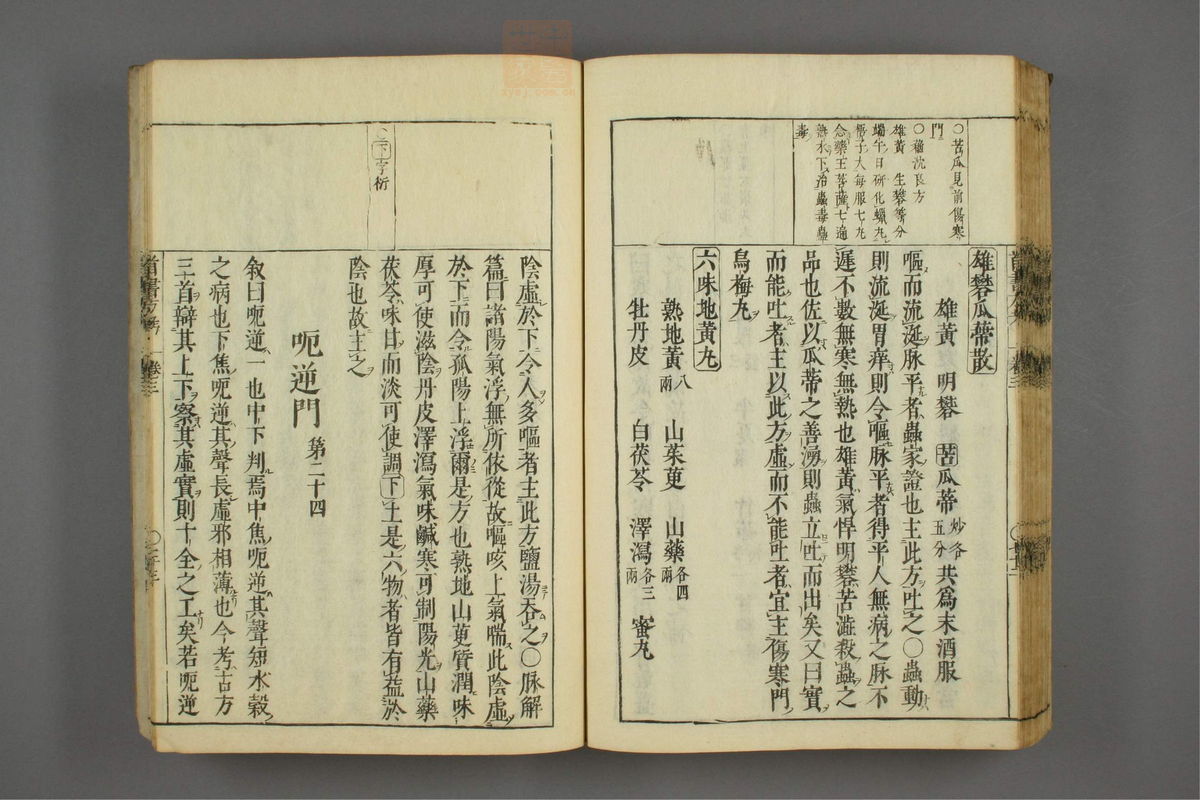 ○苦瓜見前傷寒
門
○種沈良方
雄黃 生礬等分
端午日研化蠟丸
梧子大每服七丸
念藥王菩薩七遍
熟水下治蟲毒蠱
毒
雄礬瓜蒂散
雄黃 明礬 苦瓜蒂炒各五分共爲末酒服
嘔而流涎脉平者蟲家證也主此方吐之○蟲動
則流涎胃痒則令嘔脉平者得平人無病之脉不
遲不數無寒無熱也雄黃氣悍明礬苦澁殺蟲之
品也佐以瓜蒂之善湧則蟲立吐而出矣又曰實
而能吐者主以此方虛而不能吐者宜主傷寒門
烏梅丸
六味地黃丸
熟地黃八兩 山茱萸 山藥各四兩
牡丹皮 白茯苓 澤瀉各三兩 蜜丸
下字衍
陰虛於下令人多嘔者主此方鹽湯吞之○脉解
篇曰諸陽氣浮無所依從故嘔咳上氣喘此陰虛
於下而令孤陽上浮爾是方也熟地山萸質潤味
厚可使滋陰丹皮澤瀉氣味鹹寒可制陽光山藥
茯苓味甘而淡可使調下土是六物者皆有益於
陰也故主之
呃逆門 第二十四
敘曰呃逆一也中下判焉中焦呃逆其聲短水穀
之病也下焦呃逆其聲長虛邪相薄也今考古方
三首辯其上下察其虛實則十全之工矣若呃逆